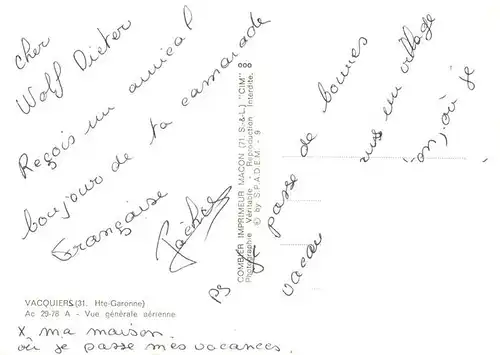 Cher
Wolf Dieter
Reçois un amical
bonjour de ta camarade
Française
PS Je passe de bonnes
vacan
un village
où je
COMBIER IMPRIMEUR MACON (71 S.-&-L.) "CIM"
Photographie Véritable - Reproduction Interdite.
© by S.P.A.D.E.M. - 9
VACQUIERS (31. Hte-Garonne)
Ac 29-78 A - Vue générale aérienne
x ma maison
où je passe mes vacances.